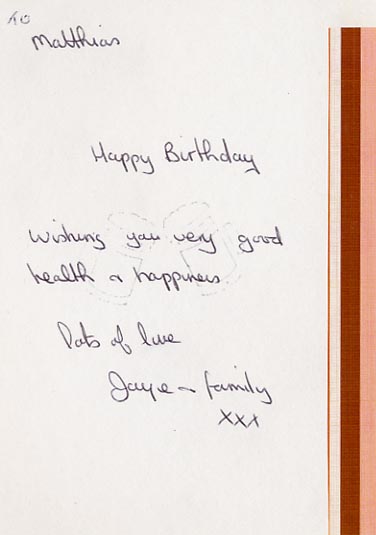 to
Matthias
Happy Birthday
Wishing you very good
health & happiness
Lots of love
Jayne & family
xxx